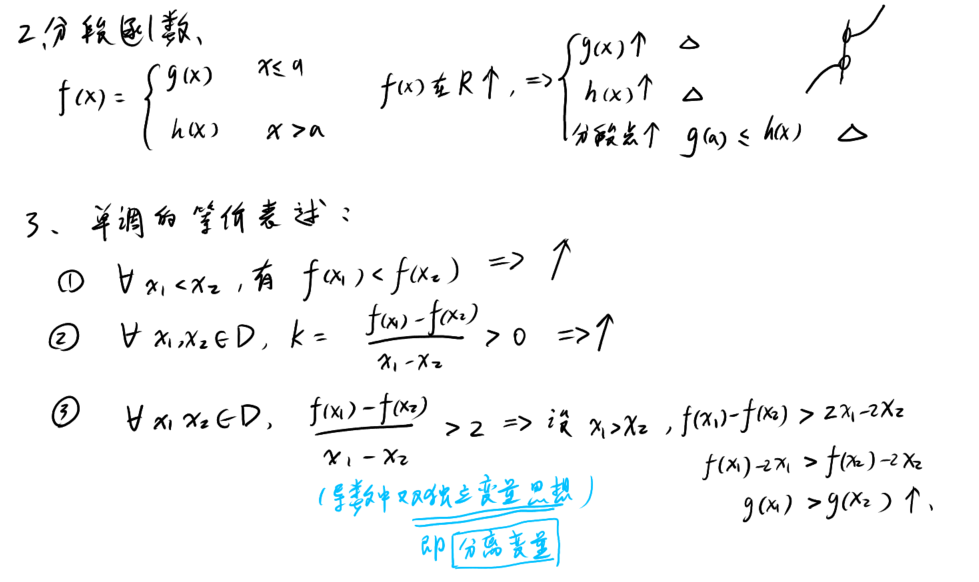 2、分段函数、
f(x) = { g(x) x≤a
h(x) x>a
f(x)在R↑, => { g(x)↑ △
h(x)↑ △
分段点↑ g(a) ≤ h(x) △
3、单调的等价表述:
① ∀ x₁<x₂, 有 f(x₁)<f(x₂) => ↑
② ∀ x₁,x₂∈D, k = (f(x₁)-f(x₂))/(x₁-x₂) > 0 => ↑
③ ∀ x₁ x₂∈D, (f(x₁)-f(x₂))/(x₁-x₂) > 2 => 设 x₁>x₂, f(x₁)-f(x₂) > 2x₁-2x₂
f(x₁)-2x₁ > f(x₂)-2x₂
g(x₁) > g(x₂) ↑、
(导数中双独立变量思想)
即 分离变量